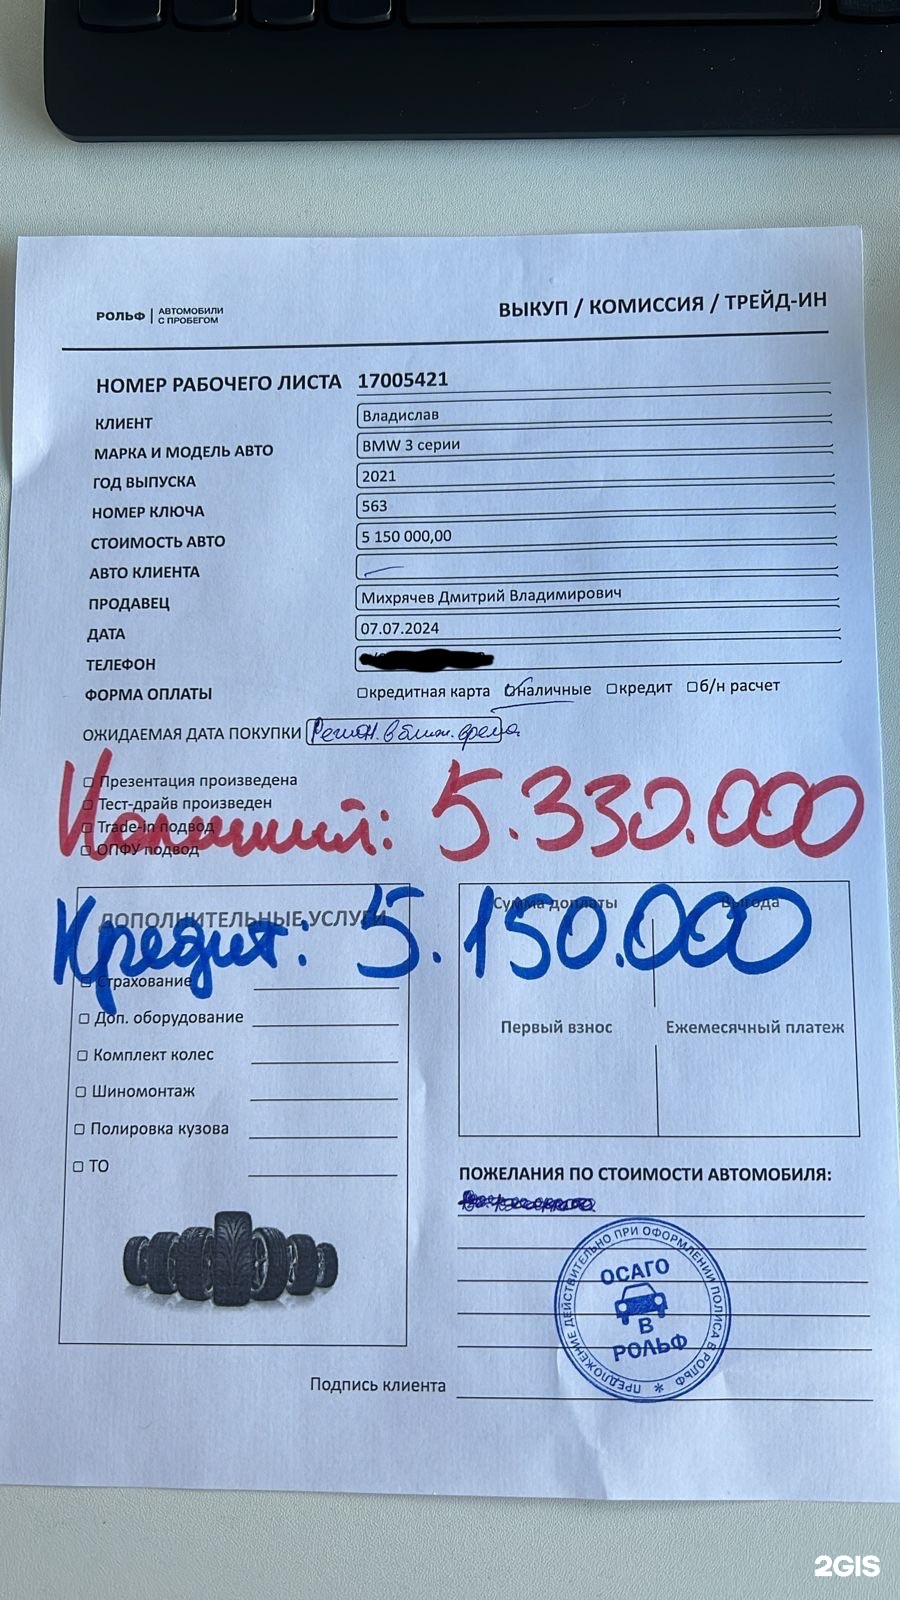 РОЛЬФ | АВТОМОБИЛИ С ПРОБЕГОМ
ВЫКУП / КОМИССИЯ / ТРЕЙД-ИН
НОМЕР РАБОЧЕГО ЛИСТА 17005421
КЛИЕНТ Владислав
МАРКА И МОДЕЛЬ АВТО BMW 3 серии
ГОД ВЫПУСКА 2021
НОМЕР КЛЮЧА 563
СТОИМОСТЬ АВТО 5 150 000,00
АВТО КЛИЕНТА
ПРОДАВЕЦ Михрячев Дмитрий Владимирович
ДАТА 07.07.2024
ТЕЛЕФОН
ФОРМА ОПЛАТЫ кредитная карта наличные кредит б/н расчет
ОЖИДАЕМАЯ ДАТА ПОКУПКИ Регион. в ближ. время
Презентация произведена
Тест-драйв произведен
Trade-in подвод
ОПФУ подвод
5.330.000
Кредит: 5.150.000
ДОПОЛНИТЕЛЬНЫЕ УСЛУГИ
Страхование
Доп. оборудование
Комплект колес
Шиномонтаж
Полировка кузова
ТО
Сумма доплаты Выгода
Первый взнос Ежемесячный платеж
ПОЖЕЛАНИЯ ПО СТОИМОСТИ АВТОМОБИЛЯ:
ПРЕДЛОЖЕНИЕ ДЕЙСТВИТЕЛЬНО ПРИ ОФОРМЛЕНИИ ПОЛИСА В РОЛЬФ *
ОСАГО
В
РОЛЬФ
Подпись клиента
2GIS